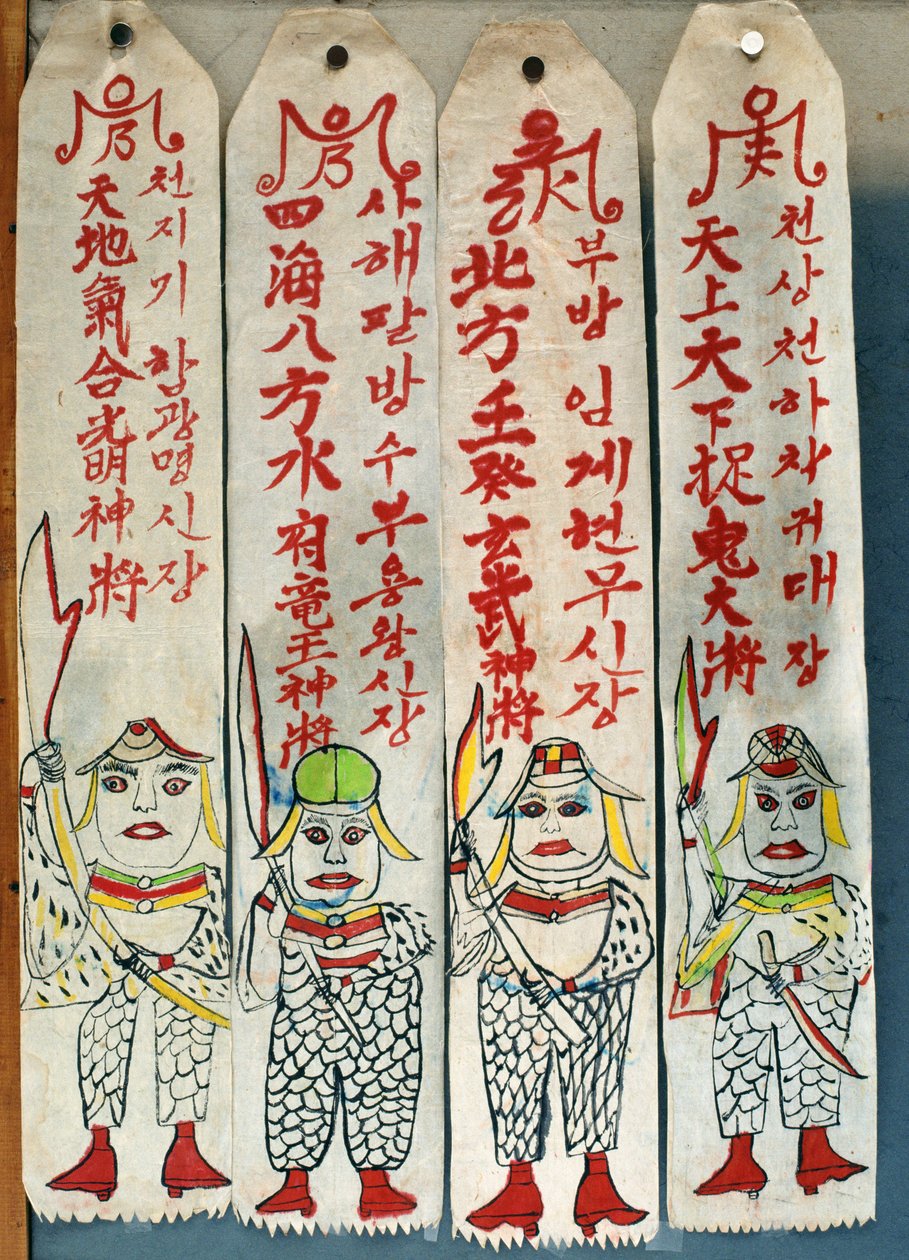 天地氣合光明神將
천지기합광명신장
四海八方水府竜王神將
사해팔방수부용왕신장
北方壬癸玄武神將
부방임게현무신장
天上大下捉鬼大將
천상천하차귀대장